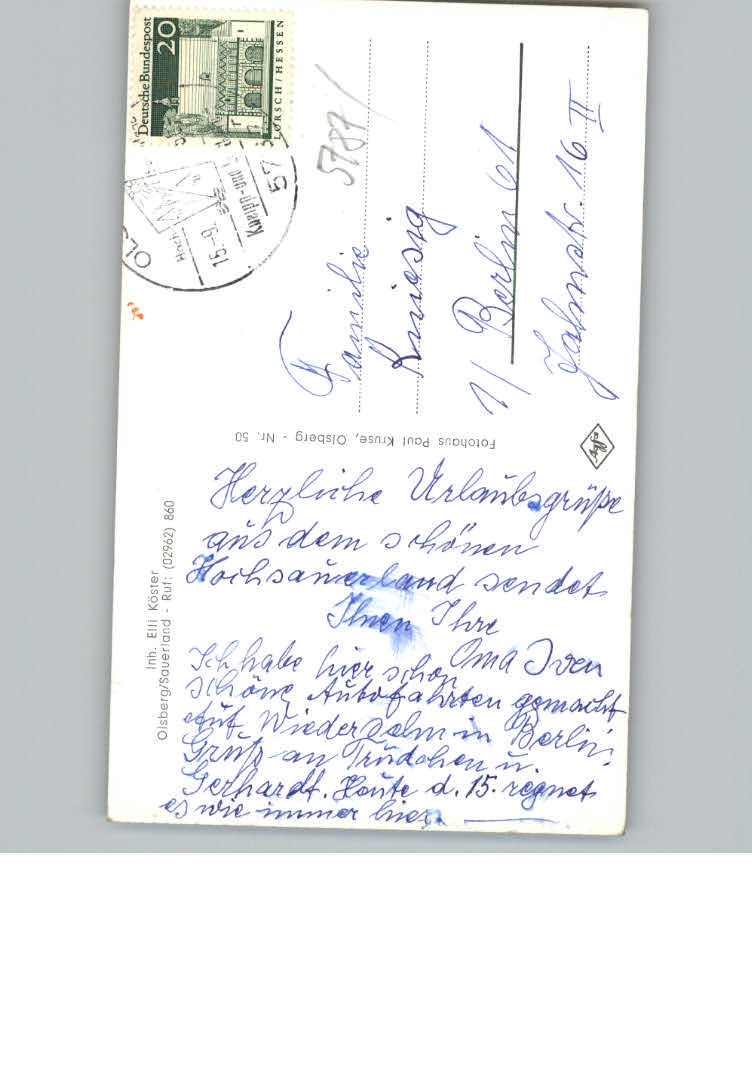 Deutsche Bundespost
20
LORSCH/HESSEN
OLS
57
15.-9.
Kneipp-und
5787/
Familie
Kniesig
1/ Berlin 61
Jahnstr. 16 II
Fotohaus Paul Kruse, Olsberg - Nr. 50
Agfa
Inh. Elli Köster
Olsberg/Sauerland - Ruf: (02962) 860
Herzliche Urlaubsgrüße
aus dem schönen
Hochsauerland sendet
Ihnen Ihre
Oma Iven
Ich habe hier schon
schöne Autofahrten gemacht
auf Wiedersehn in Berlin.
Gruß an Trudchen u.
Gerhardt. Heute d. 15. regnet
es wie immer hier.